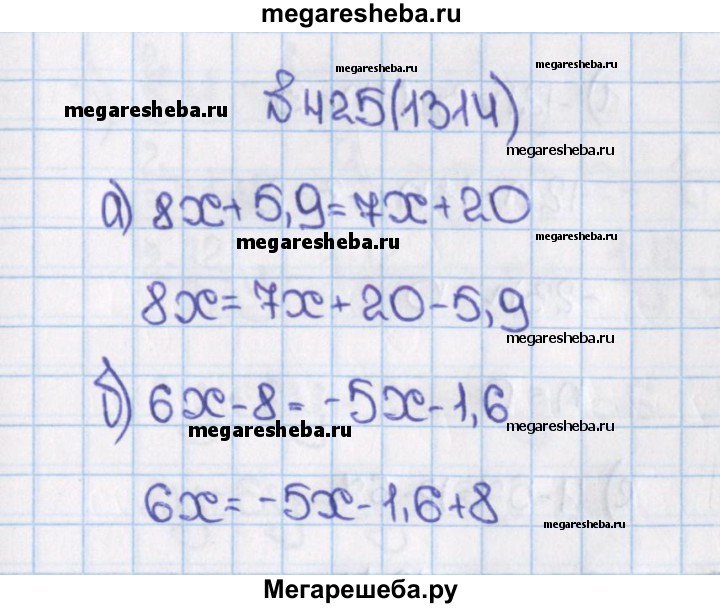 megaresheba.ru
megaresheba.ru
megaresheba.ru
megaresheba.ru
№425(1314)
megaresheba.ru
а) 8x+5,9=7x+20
megaresheba.ru
megaresheba.ru
8x=7x+20-5,9
megaresheba.ru
б) 6x-8=-5x-1,6
megaresheba.ru
megaresheba.ru
6x=-5x-1,6+8
megaresheba.ru
Мегарешеба.ру